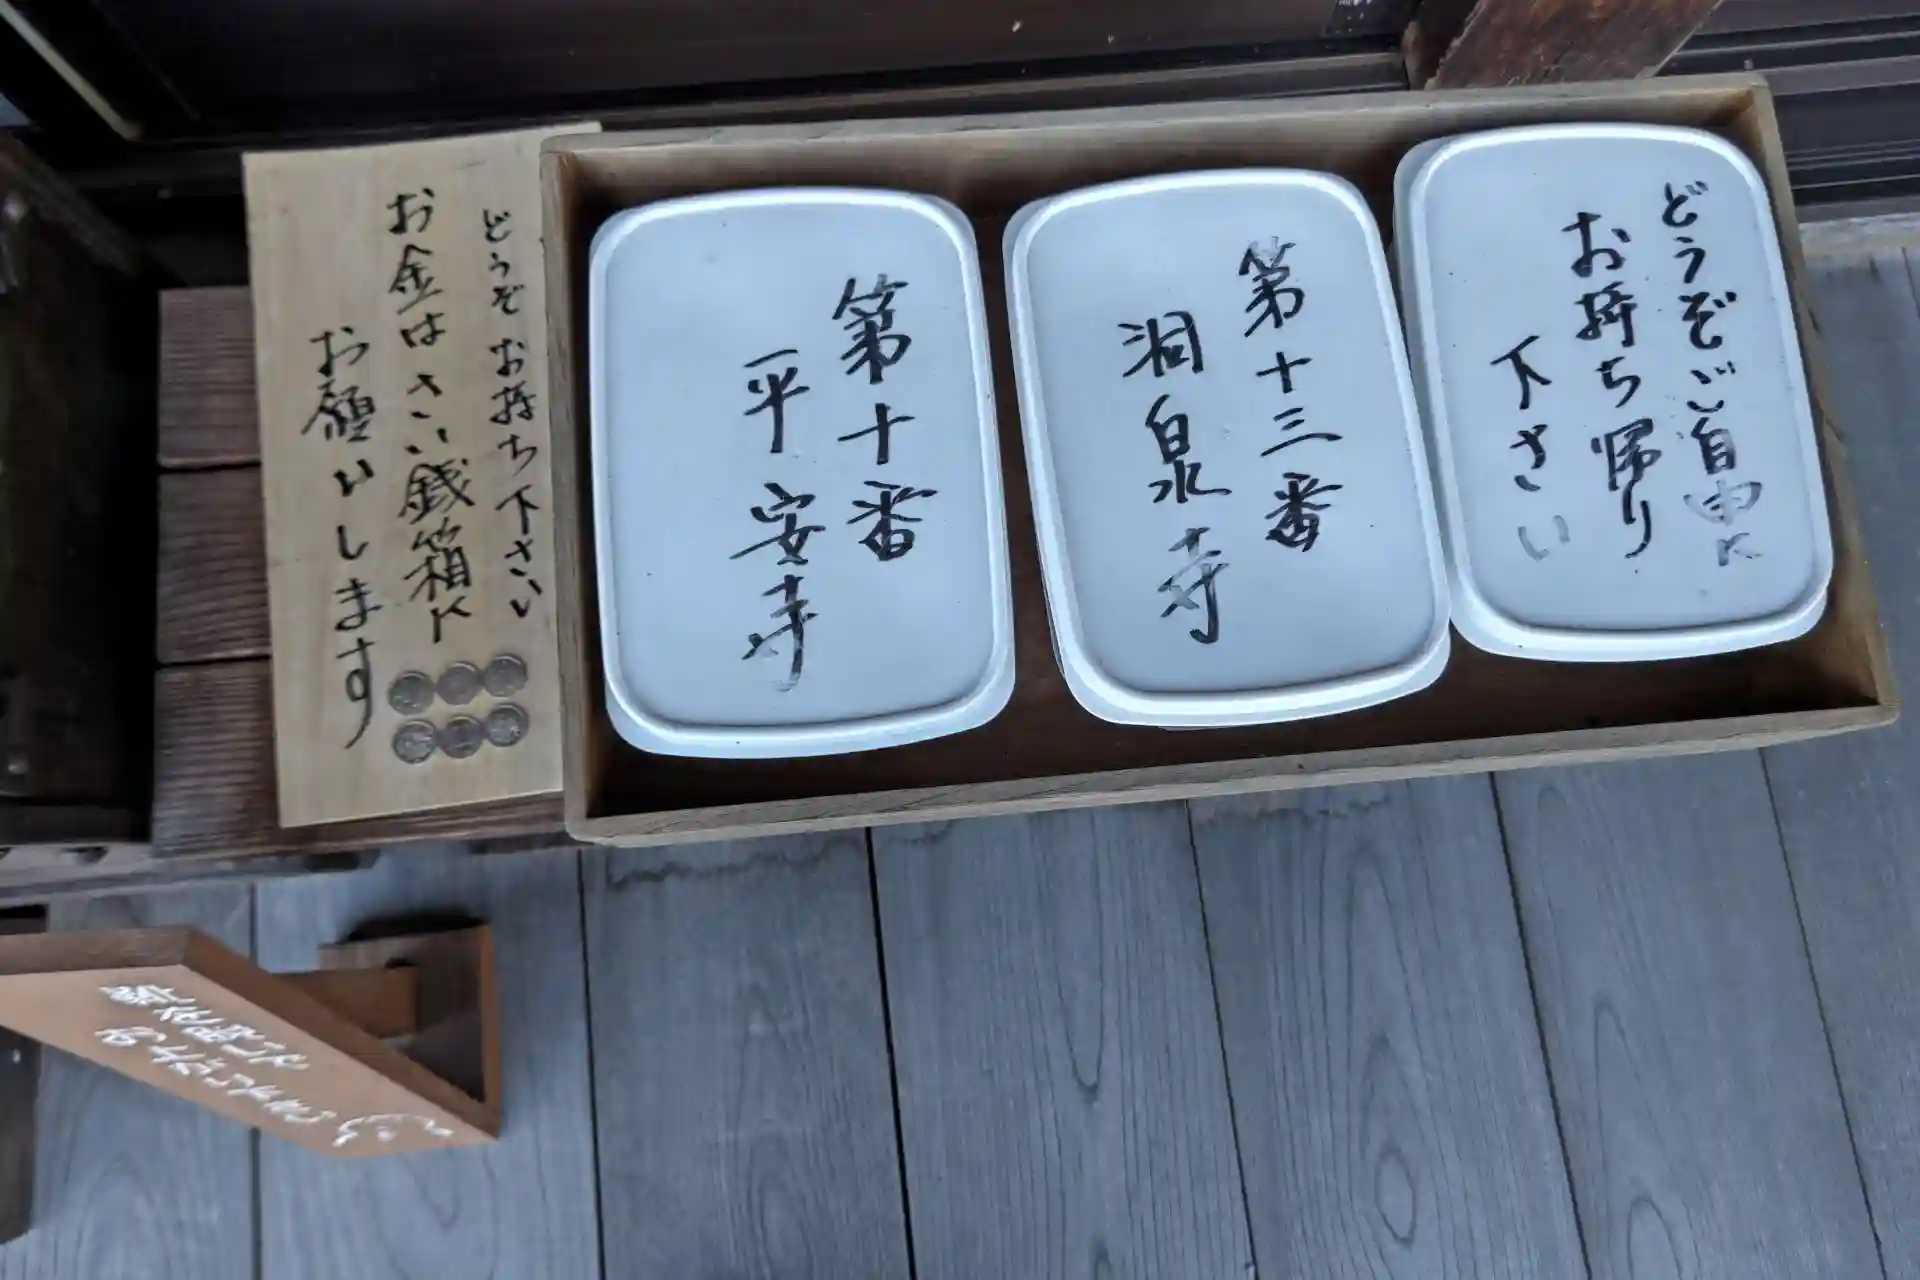 どうぞご自由に
お持ち帰り
下さい
第十三番
洞泉寺
第十番
平安寺
どうぞお持ち下さい
お金はさい銭箱に
お願いします